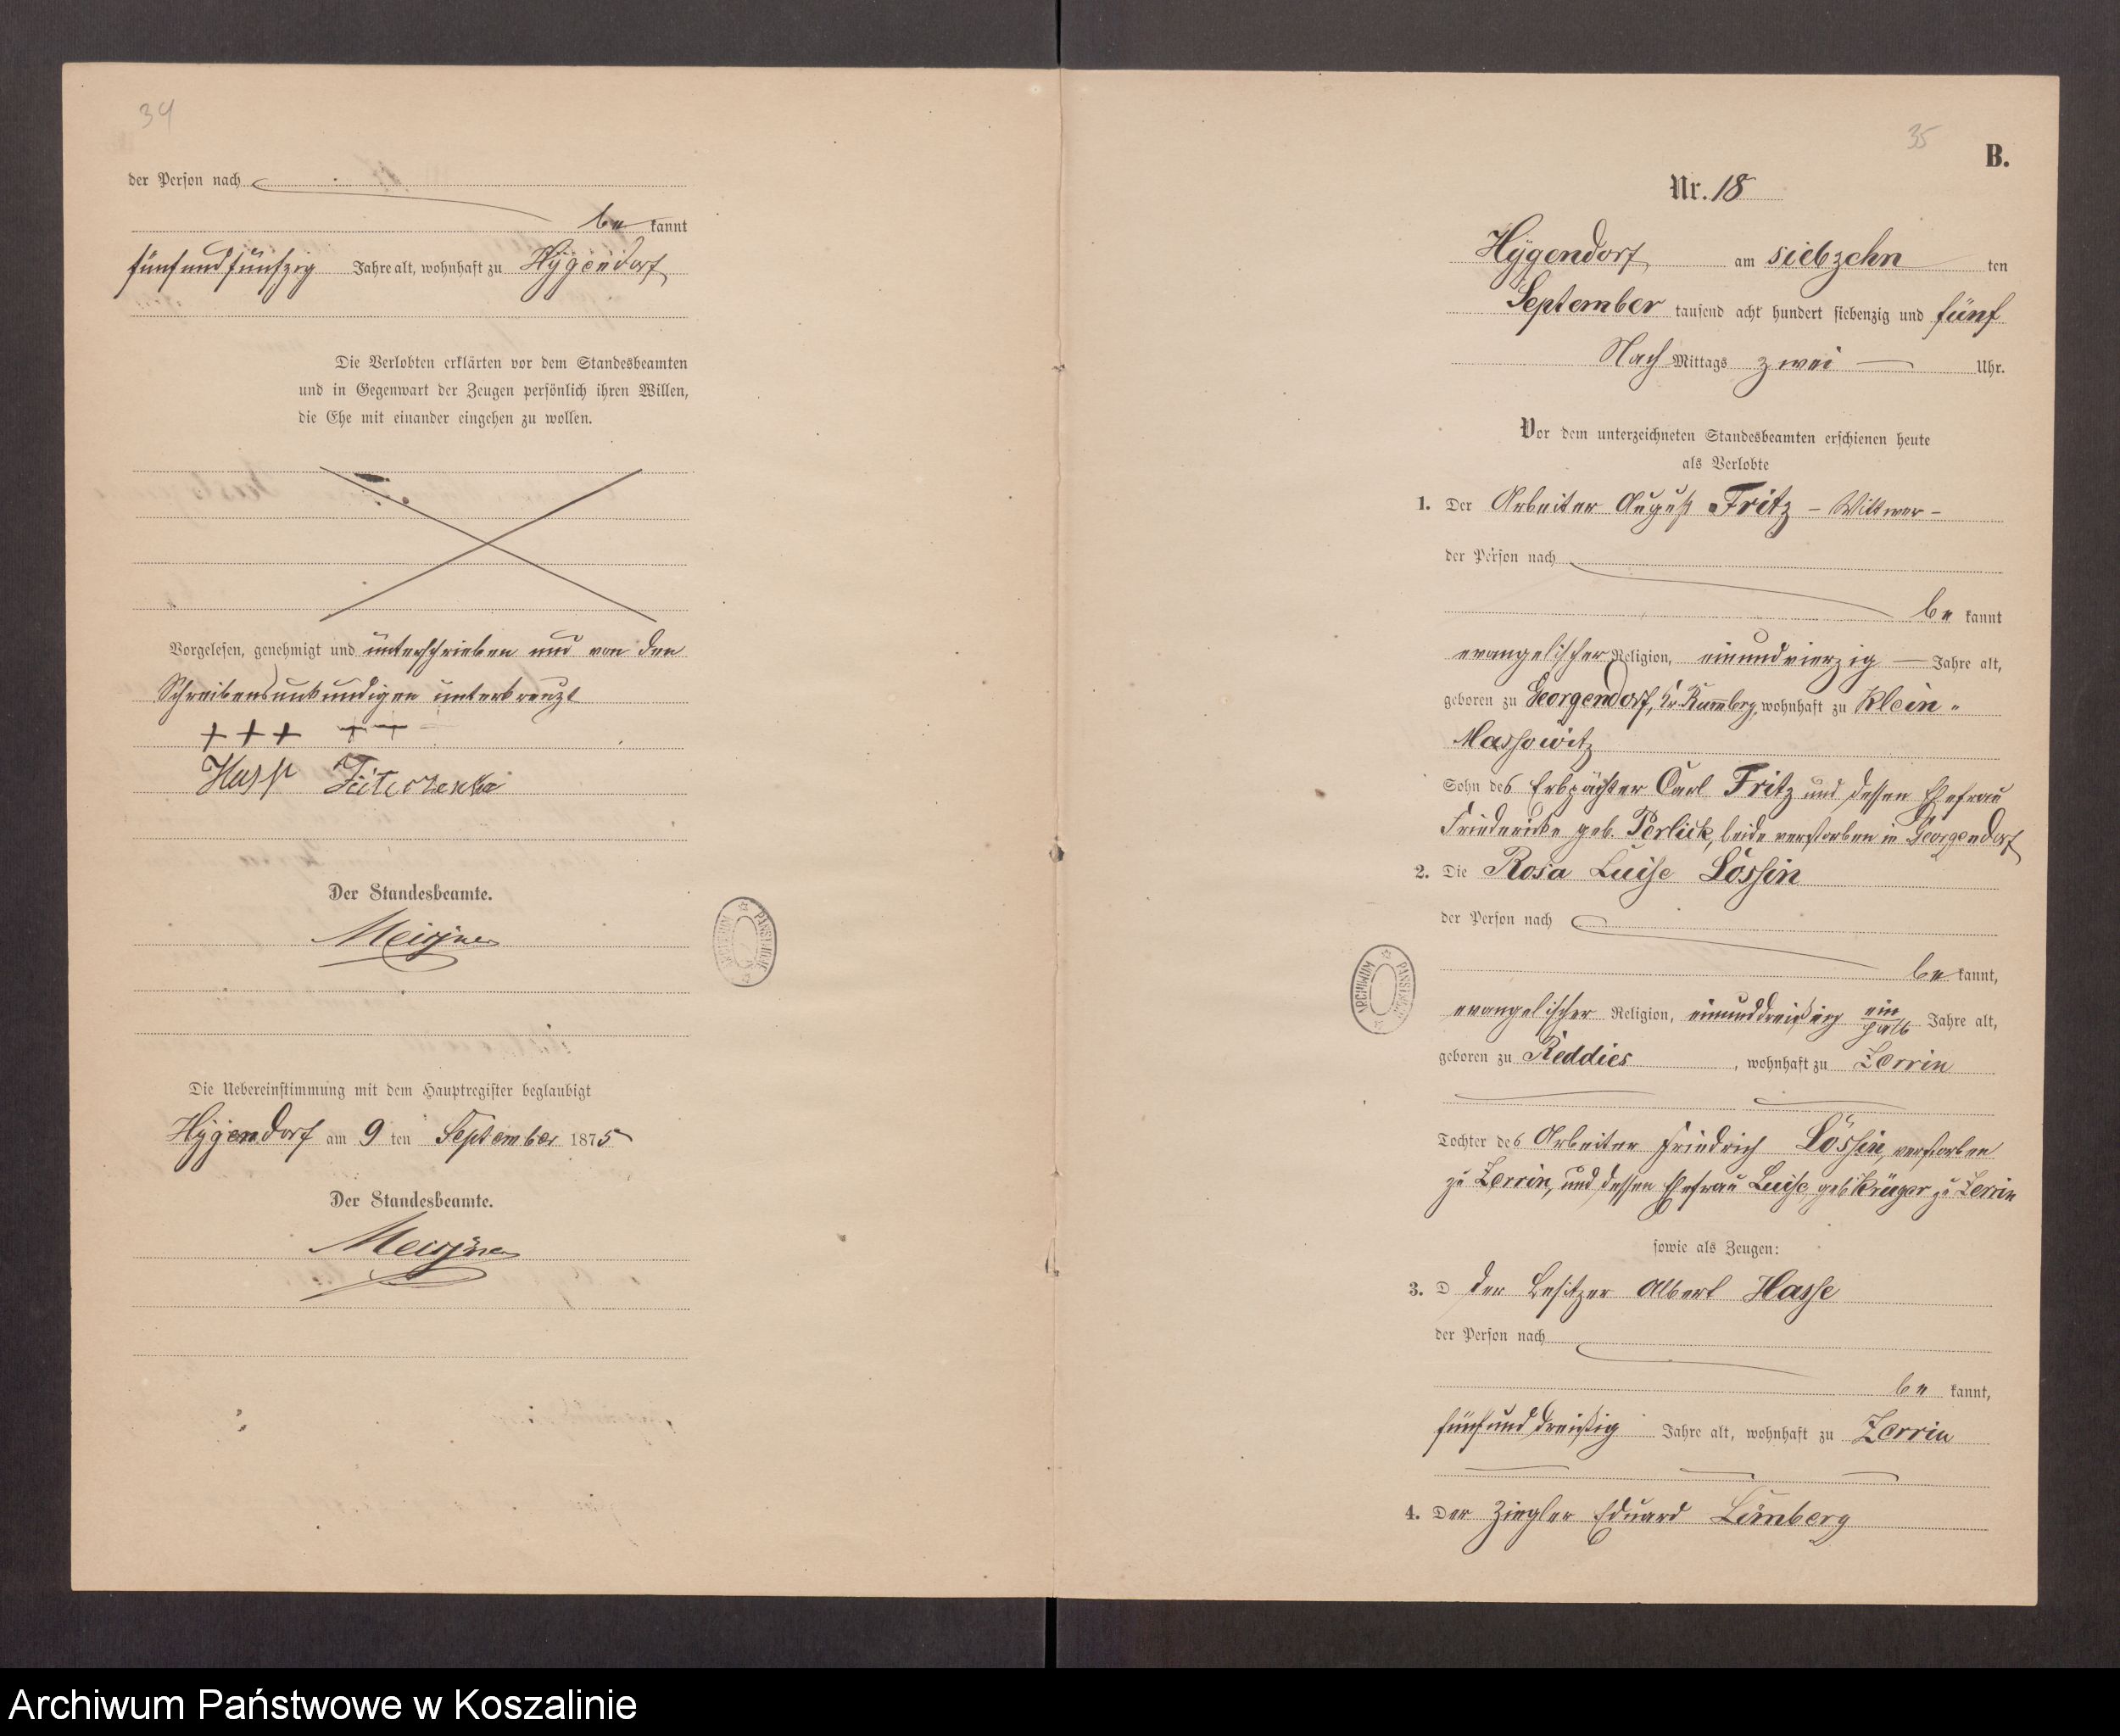 34
der Person nach
be kannt
fünfundfünfzig Jahre alt, wohnhaft zu Hygendorf
Die Verlobten erklärten vor dem Standesbeamten
und in Gegenwart der Zeugen persönlich ihren Willen,
die Ehe mit einander eingehen zu wollen.
Vorgelesen, genehmigt und unterschrieben und von den
Schreibensunkundigen unterkreuzt
+++ ++
Hasse
Der Standesbeamte.
Die Uebereinstimmung mit dem Hauptregister beglaubigt
Hygendorf am 9 ten September 1875
Der Standesbeamte.
ARCHIWUM PAŃSTWOWE
35
B.
Nr. 18
Hygendorf, am siebzehn ten
September tausend acht hundert siebenzig und fünf
Nach Mittags zwei Uhr.
Vor dem unterzeichneten Standesbeamten erschienen heute
als Verlobte
1. Der Arbeiter August Fritz – Wittwer –
der Person nach
be kannt
evangelischer Religion, einundvierzig Jahre alt,
geboren zu Georgendorf, Kr. wohnhaft zu Klein-
Massowitz
Sohn des Erbpächter Carl Fritz und dessen Ehefrau
Friedericke geb. Perlick, beide verstorben in Georgendorf
2. Die Rosa Luise Lössin
der Person nach
be kannt,
evangelischer Religion, einunddreißig ein halb Jahre alt,
geboren zu Reddies, wohnhaft zu Zerrin
Tochter des Arbeiter Friedrich Lössin, verstorben
zu Zerrin, und dessen Ehefrau Luise geb. Krüger zu Zerrin
sowie als Zeugen:
3. D der Besitzer Albert Hasse
der Person nach
be kannt,
fünfunddreißig Jahre alt, wohnhaft zu Zerrin
4. Der Ziegler Eduard Lömberg
ARCHIWUM PAŃSTWOWE
Archiwum Państwowe w Koszalinie